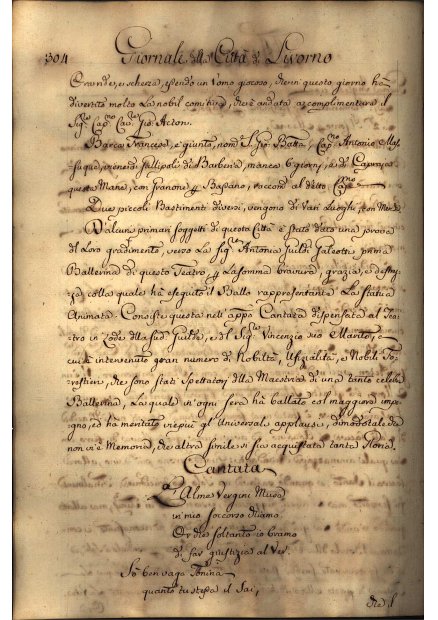 304 Giornale della Città di Livorno
Grande, e scherza, essendo un Uomo giocoso, che in questo giorno hà
divertito molto la nobil comitiva, che è andata a complimentare il
Sig.re Cap.no Cav.re Gio: Acton.
Barca Francese, è giunta, nom.a S. Gio: Batta, Cap.no Antonio
viene di Gallipoli di Barberia, manca 6 giorni, e di Capraja
questa Mane, con Granone Bassano, raccom.a al detto Cap.no
Due piccoli Bastimenti diversi, vengono di Vari Luoghi, con Merci.
D'alcuni primari soggetti di questa Città è stato dato una prova
del Loro gradimento, verso La Sig.ra Antonia Guidi Galeotti prima
Ballerina di questo Teatro, La somma bravura, grazia, e destrez
za colla quale hà eseguito il Ballo rappresentante La Statua
Animata. Consiste questa nell'appo Cantata dispensata al Tea
tro in Lode della sud. Guidi, e del Sig.re Vincenzio suo Marito, a
cui è intervenuto gran numero di Nobiltà, Ufizialità, e Nobili Fo
restieri, che sono stati Spettatori della Maestria di una tanto celebre
Ballerina, La quale in ogni sera hà ballato col maggiore impe
gno, ed hà meritato viepiù gl' Universali applausi, dimodoche
non vi è Memoria, che altra simile si sia acquistata tanta Gloria.
Cantata
Alme Vergini Muse
in mio soccorso chiamo
Or che soltanto io bramo
di far giustizia al Ver.
So ben vaga Tonina
quanto tu stessa il Sai,
che il